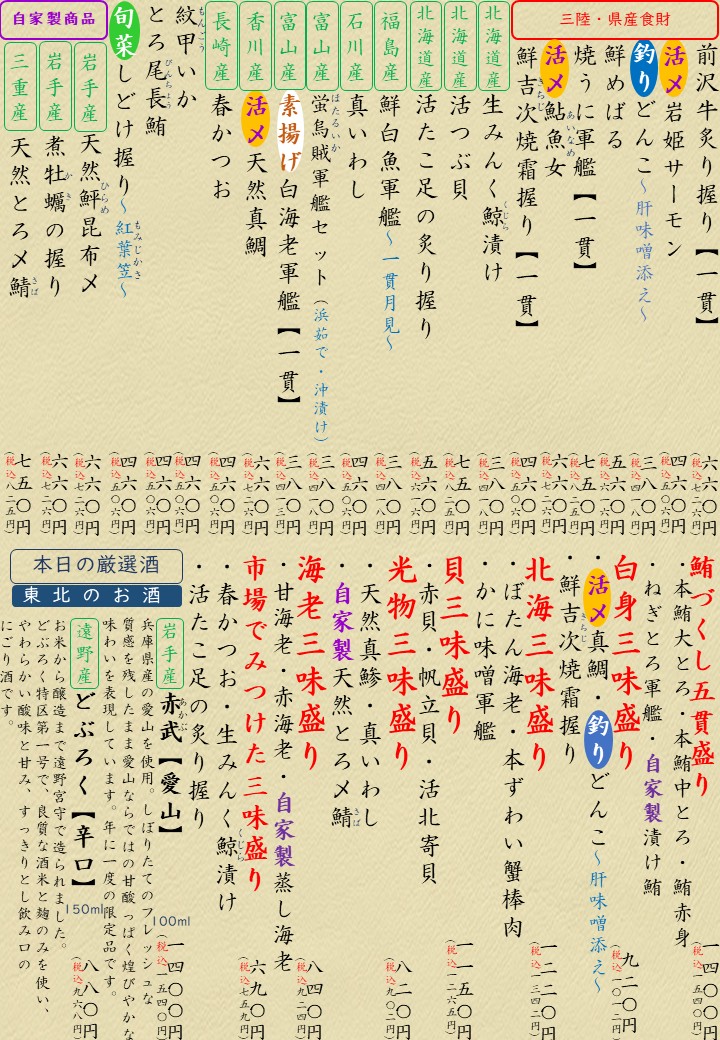 三陸・県産食財
前沢牛炙り握り【一貫】 六六〇円（税込七二六円）
活〆岩姫サーモン 四六〇円（税込五〇六円）
釣りどんこ～肝味噌添え～ 三八〇円（税込四一八円）
鮮めばる 五六〇円（税込六一六円）
焼うに軍艦【一貫】 七五〇円（税込八二五円）
活〆鮎魚女 六六〇円（税込七二六円）
あいなめ
鮮吉次焼霜握り【一貫】 四六〇円（税込五〇六円）
きちじ
北海道産 生みんく鯨漬け 三八〇円（税込四一八円）
くじら
北海道産 活つぶ貝 七五〇円（税込八二五円）
北海道産 活たこ足の炙り握り 五六〇円（税込六一六円）
福島産 鮮白魚軍艦～一貫月見～ 三八〇円（税込四一八円）
石川産 真いわし 四六〇円（税込五〇六円）
富山産 蛍烏賊軍艦セット（浜茹で・沖漬け） 三八〇円（税込四一八円）
ほたるいか
富山産 素揚げ白海老軍艦【一貫】 三八〇円（税込四一八円）
香川産 活〆天然真鯛 六六〇円（税込七二六円）
長崎産 春かつお 四六〇円（税込五〇六円）
紋甲いか 四六〇円（税込五〇六円）
もんごう
とろ尾長鮪 四六〇円（税込五〇六円）
びんちょう
旬菜しどけ握り～紅葉笠～ 四六〇円（税込五〇六円）
もみじかさ
自家製商品
岩手産 天然鮃昆布〆 六六〇円（税込七二六円）
ひらめ
岩手産 煮牡蠣の握り 六六〇円（税込七二六円）
かき
三重産 天然とろ〆鯖 七五〇円（税込八二五円）
さば
鮪づくし五貫盛り 一四〇〇円（税込一五四〇円）
・本鮪大とろ・本鮪中とろ・鮪赤身
・ねぎとろ軍艦・自家製漬け鮪
白身三味盛り 九二〇円（税込一〇一二円）
・活〆真鯛・釣りどんこ～肝味噌添え～
・鮮吉次焼霜握り
きちじ
北海三味盛り 一二二〇円（税込一三四二円）
・ぼたん海老・本ずわい蟹棒肉
・かに味噌軍艦
貝三味盛り 一一五〇円（税込一二六五円）
・赤貝・帆立貝・活北寄貝
光物三味盛り 八二〇円（税込九〇二円）
・天然真鯵・真いわし
・自家製天然とろ〆鯖
さば
海老三味盛り 八四〇円（税込九二四円）
・甘海老・赤海老・自家製蒸し海老
市場でみつけた三味盛り 六九〇円（税込七五九円）
・春かつお・生みんく鯨漬け
くじら
・活たこ足の炙り握り
本日の厳選酒
東北のお酒
岩手産 赤武【愛山】 100ml 一四〇〇円（税込一五四〇円）
あかぶ
兵庫県産の愛山を使用。しぼりたてのフレッシュな
質感を残したまま愛山ならではの甘酸っぱく煌びやかな
味わいを表現しています。年に一度の限定品です。
遠野産 どぶろく【辛口】 150ml 八八〇円（税込九六八円）
お米から醸造まで遠野宮守で造られました。
どぶろく特区第一号で、良質な酒米と麹のみを使い、
やわらかい酸味と甘み、すっきりとし飲み口の
にごり酒です。